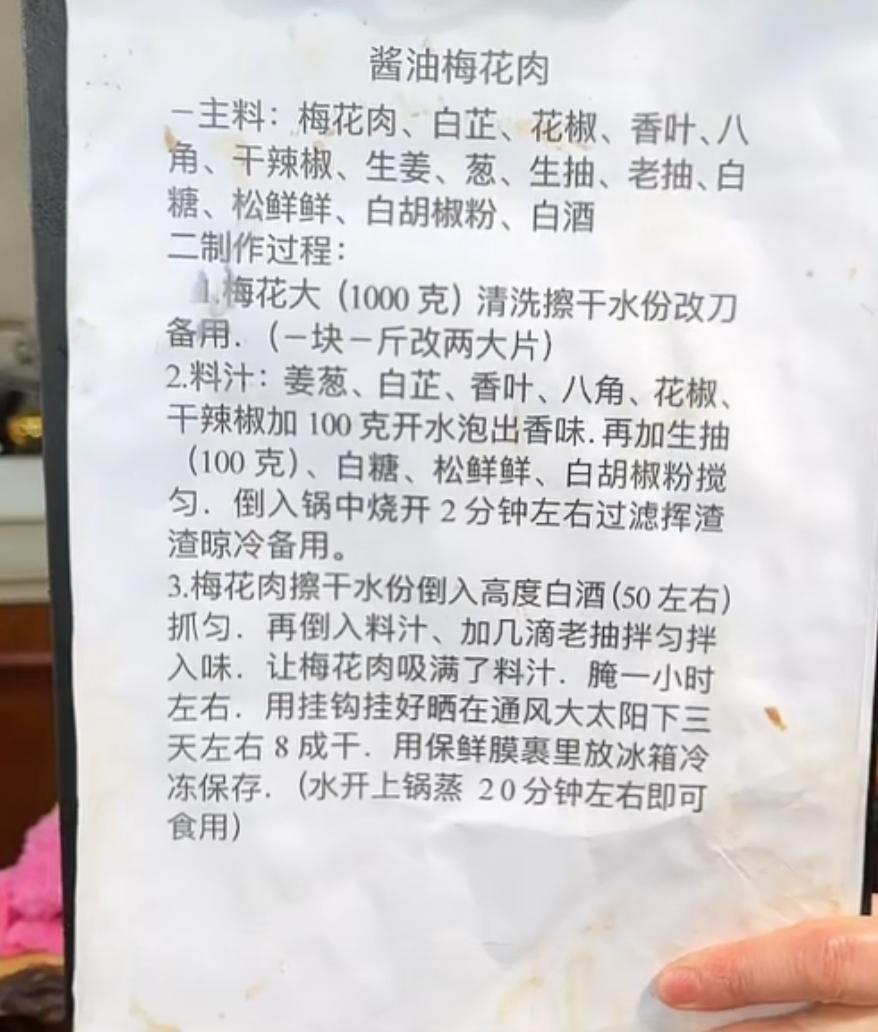 酱油梅花肉
一主料：梅花肉、白芷、花椒、香叶、八
角、干辣椒、生姜、葱、生抽、老抽、白
糖、松鲜鲜、白胡椒粉、白酒
二制作过程：
1.梅花大（1000 克）清洗擦干水份改刀
备用．（一块一斤改两大片）
2.料汁：姜葱、白芷、香叶、八角、花椒、
干辣椒加 100 克开水泡出香味.再加生抽
（100 克）、白糖、松鲜鲜、白胡椒粉搅
匀．倒入锅中烧开 2 分钟左右过滤挥渣
渣晾冷备用。
3.梅花肉擦干水份倒入高度白酒(50 左右)
抓匀．再倒入料汁、加几滴老抽拌匀拌
入味．让梅花肉吸满了料汁．腌一小时
左右．用挂钩挂好晒在通风大太阳下三
天左右 8 成干．用保鲜膜裹里放冰箱冷
冻保存．(水开上锅蒸 20 分钟左右即可
食用)